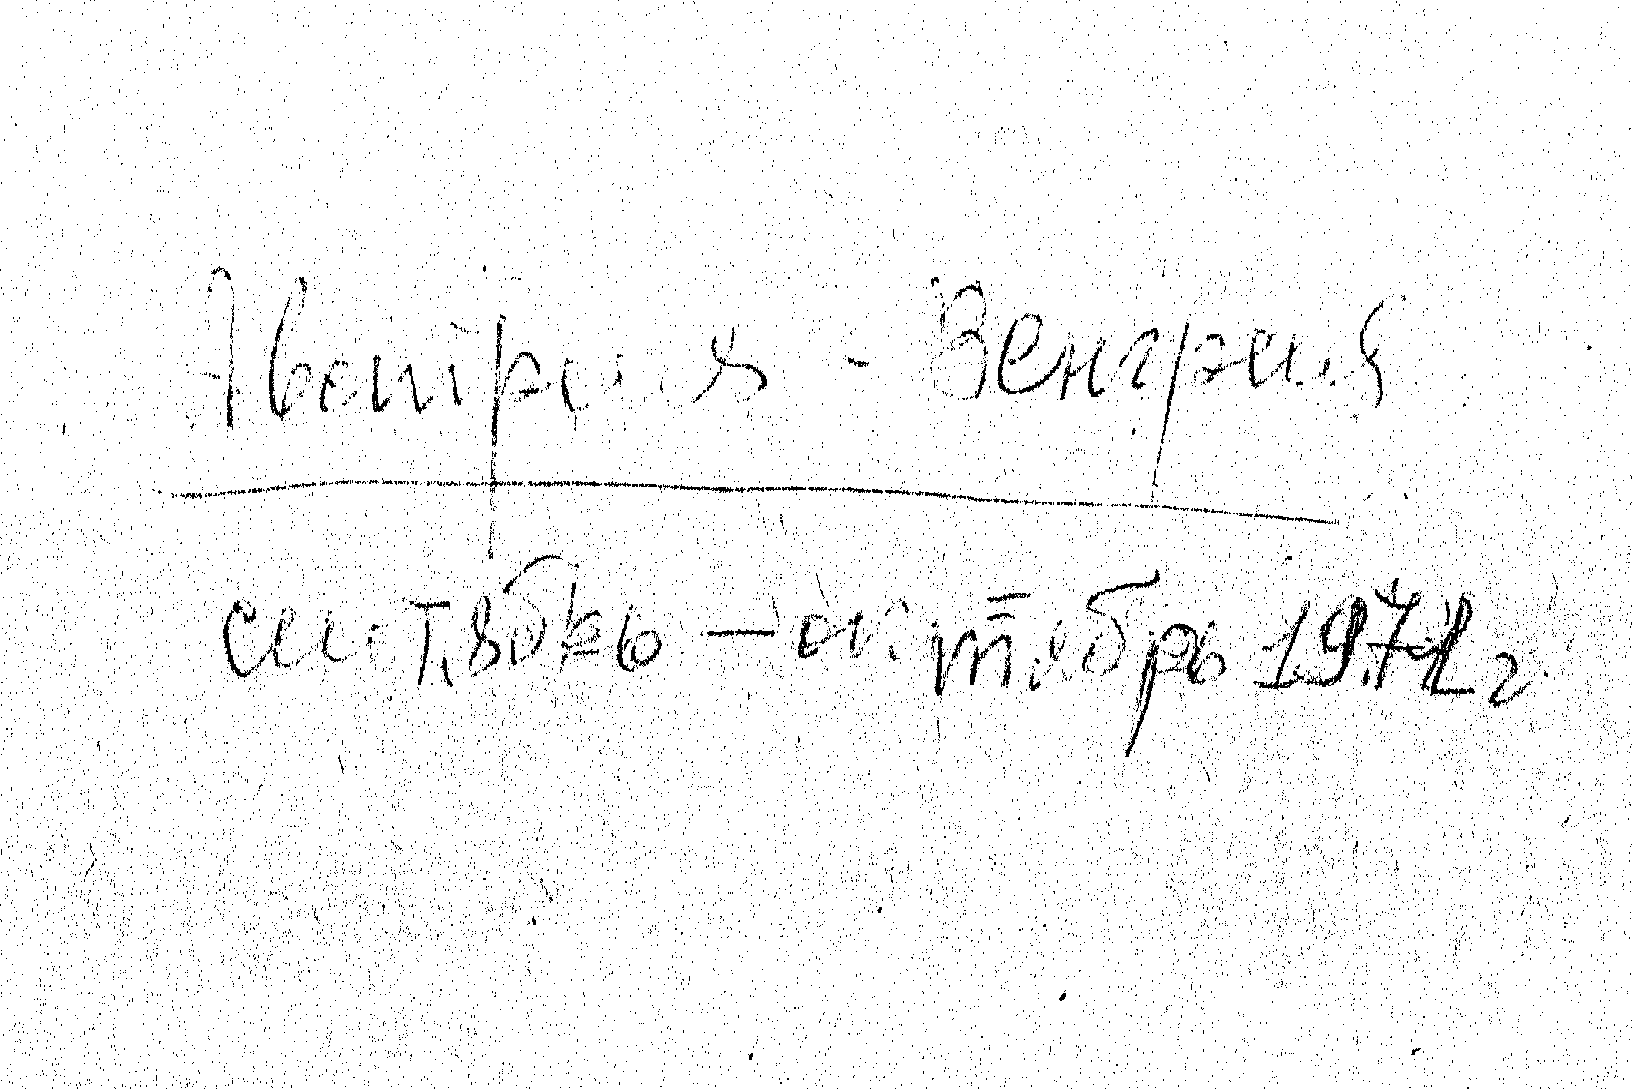 Австрия - Венгрия
сентябрь – октябрь 1971 г.